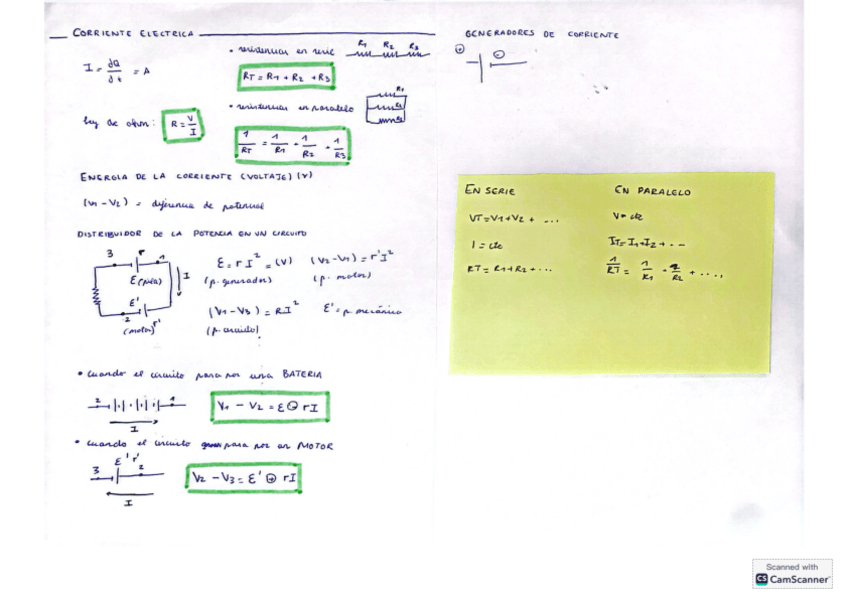 CORRIENTE ELECTRICA
I = dQ/dt = A
• resistencias en serie
R1 R2 R3
RT = R1 + R2 + R3
• resistencias en paralelo
R1
ley de ohm: R = V/I
1/RT = 1/R1 + 1/R2 + 1/R3
ENERGIA DE LA CORRIENTE (VOLTAJE) (V)
(V1 - V2) = diferencia de potencial
DISTRIBUIDOR DE LA POTENCIA EN UN CIRCUITO
3 r 1
ε (pila)
I
ε'
2 r'
(motor)
ε = rI² = (V) (V2 - V1) = r'I²
(p. generador) (p. motor)
(V1 - V3) = RI² ε' = p. mecánica
(p. circuito)
• cuando el circuito pasa por una BATERIA
2 1
I
V1 - V2 = ε - rI
• cuando el circuito pasa por un MOTOR
ε' r'
3 2
I
V2 - V3 = ε' + rI
GENERADORES DE CORRIENTE
+ -
EN SERIE
VT = V1 + V2 + ...
I = cte
RT = R1 + R2 + ...
EN PARALELO
V = cte
IT = I1 + I2 + ...
1/RT = 1/R1 + 1/R2 + ....
Scanned with
CS CamScanner